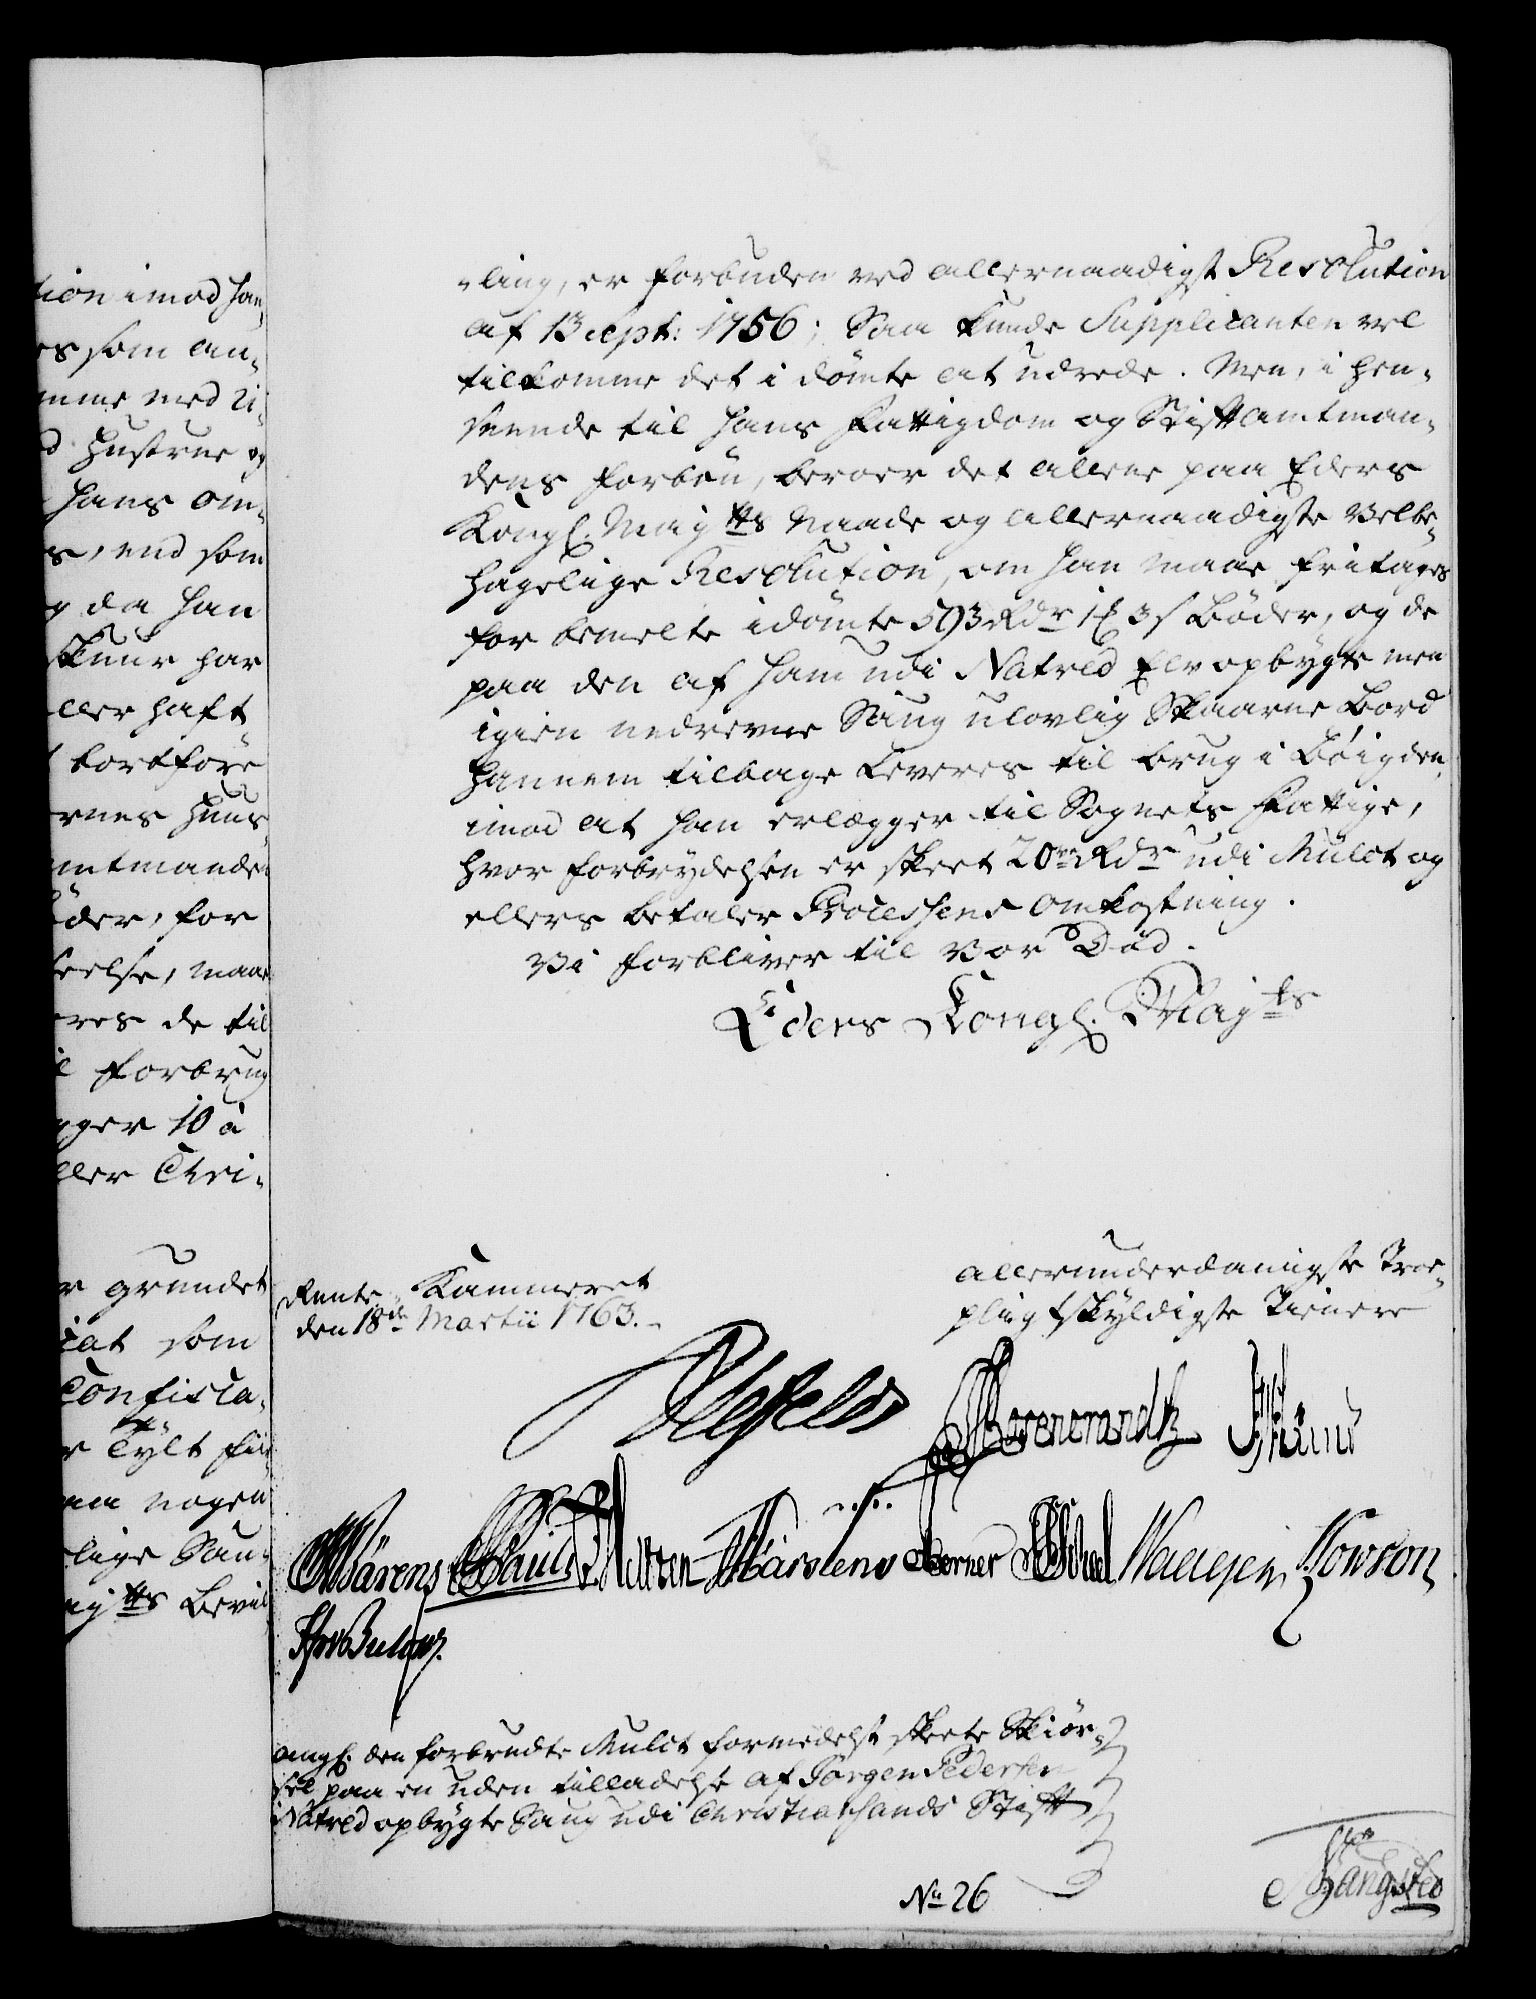 tion imod han,
es som an-
mme med Ti-
d Hustrue og
hans om-
s, end som
g da han
skuur har
ller haft
bortføre
ernes Huus
mtmanden
øder, for
eelse, maae
eres de til
l forbrug
gger 10 à
ller Chri-
r grundet
cat som
Confisca-
r Tylt fiir
aa nogen
lige Sau-
ay^tts Bevil
-ling, er forbuden ved allernaadigst Resolution
af 13 Sept: 1756; Saa kunde Supplicanten vel
tilkomme det i dömte at udrede. Men, i Hen-
seende til hans Fattigdom og Stiftamtman-
dens forbön, beroer det allene paa Eders
Kongl. May^tts Naade og allernaadigste Velbe-
hagelige Resolution, om han maae fritages
for bemelte idömte 593 Rdr 1 3 s Bøder, og de
paa den af ham udi Natred Elv opbygte men
igien nedrevne Saug ulovlig Skaarne Bord
Hannem tilbage leveres til brug i Bøigden,
imod at han erlægger til Sognets Fattige,
hvor forbrydelsen er skeet 20^ve Rdr udi Mulct og
ellers betaler Processens Omkostning.
Vi forbliver til Vor Död.
Eders Kongl. May^ts
Rente-Kammeret
den 18^de Martii 1763.
allerunderdanigste Troe-
pligtskyldigste Tienere
Rosencrandtz
Wärens Martens Berner Waugesen Kowson
v Bulow.
angl. den forbrudte Mulct formedelst skeete Skiør-
sel paa en uden tilladelse af Jørgen Pedersen
Natred opbygte Saug udi Christiansands Stift
N^o 26
Bangsted